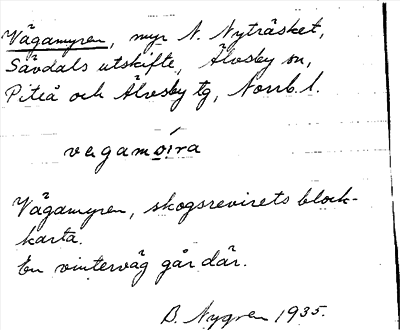 Vägamyren, myr N. Nyträsket,
Sävdals utskifte, Älvsby sn,
Piteå och Älvsby tg, Norrb. l.
vegamo͟íra
Vägamyren, skogsrevirets block-
karta.
En vinterväg går där.
B. Nygren 1935.